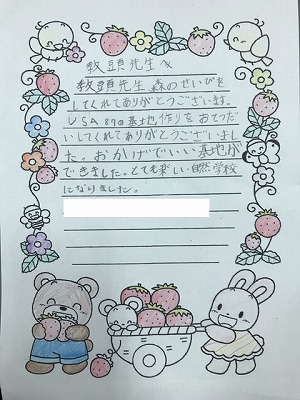 教頭先生へ
教頭先生 森のせいびを
してくれてありがとうございます。
USA87の基地作りをおてつだ
いしてくれてありがとうございまし
た。おかげでいい基地が
できました。とても楽しい自然学校
になりました。